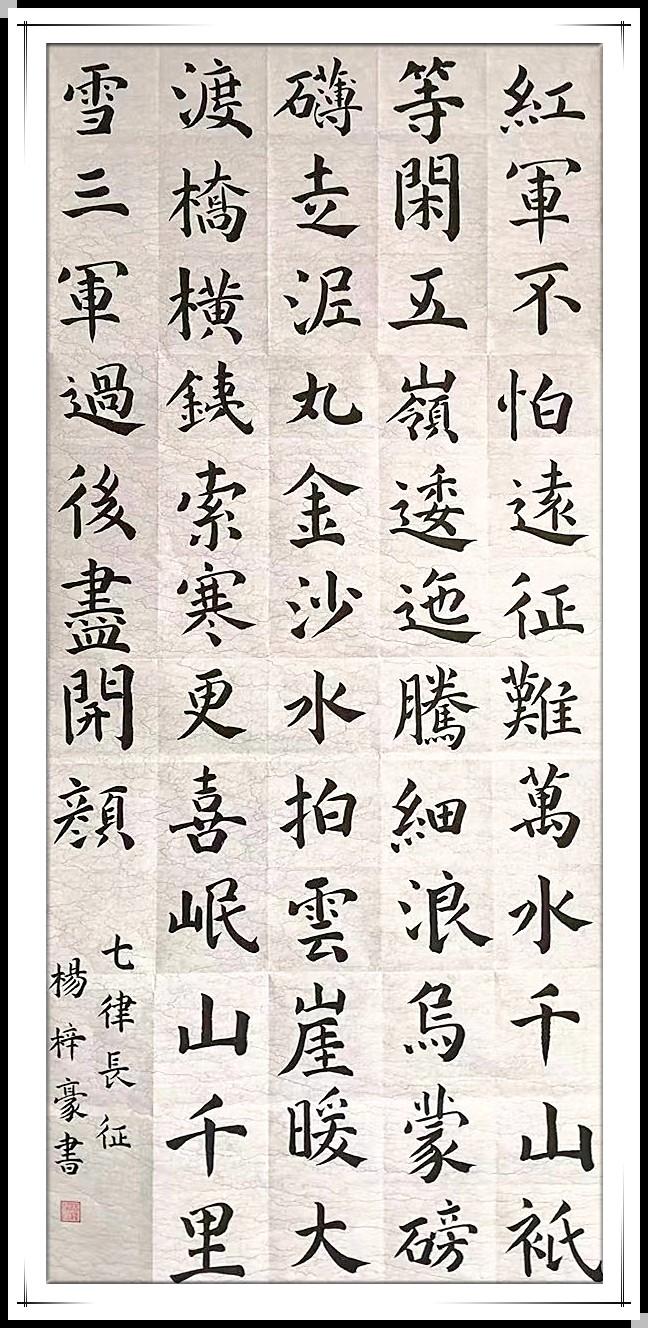 紅軍不怕遠征難萬水千山祇
等閑五嶺逶迤騰細浪烏蒙磅
礴走泥丸金沙水拍雲崖暖大
渡橋横銕索寒更喜岷山千里
雪三軍過後盡開顔
七律長征
楊梓豪書